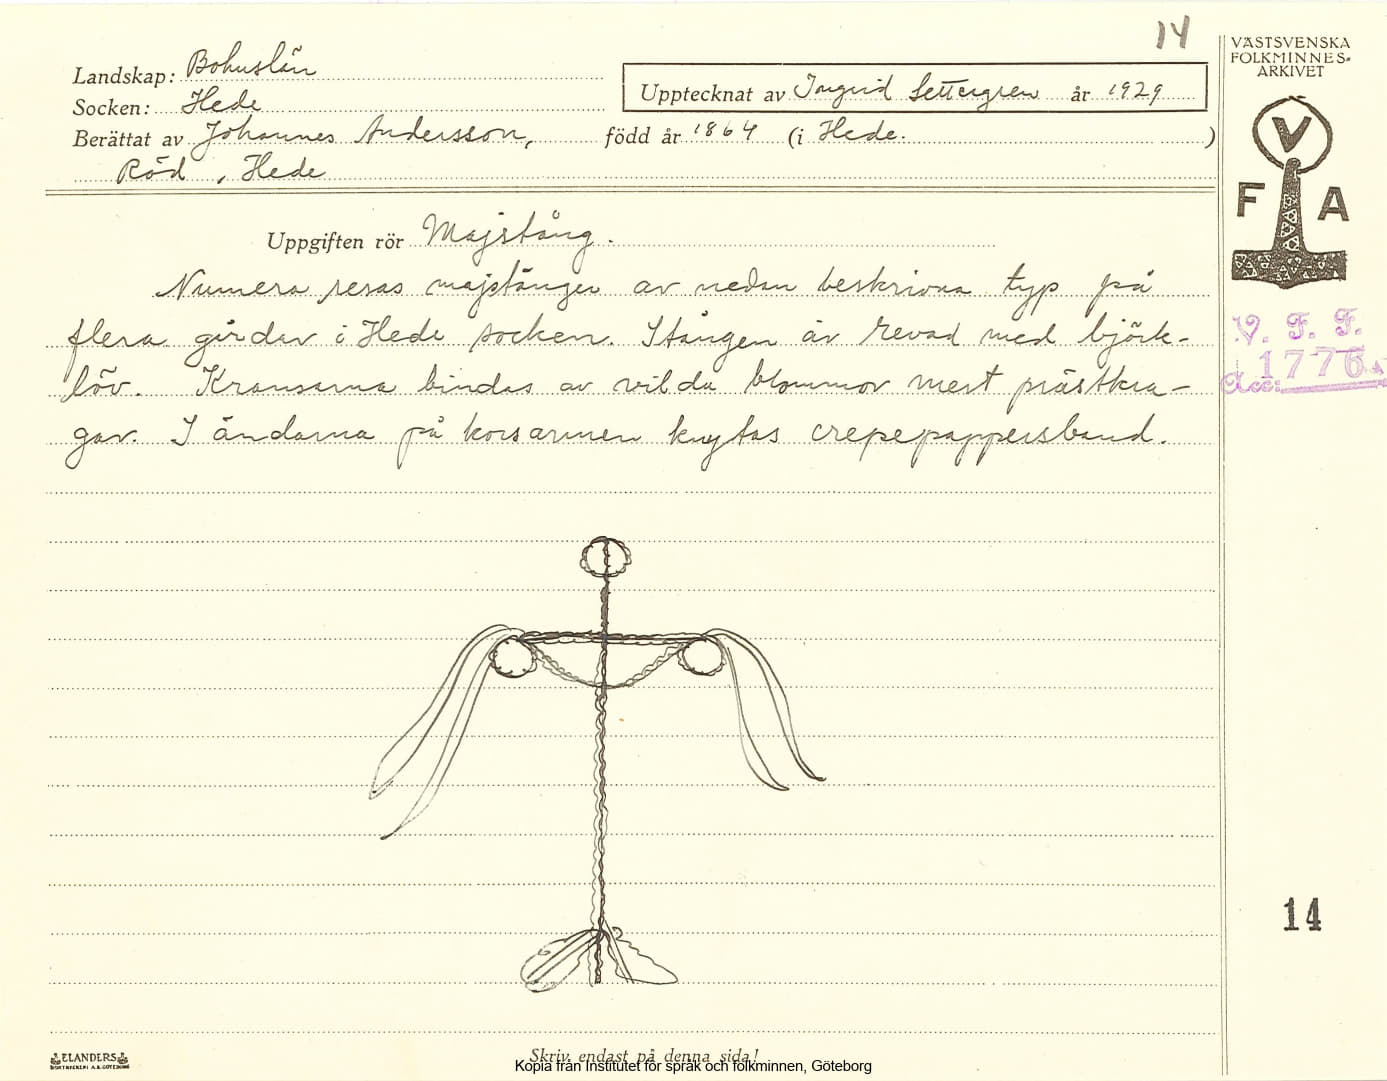 14
VÄSTSVENSKA
FOLKMINNES-
ARKIVET
Landskap: Bohuslän
Socken: Hede
Upptecknat av Ingrid Settergren år 1929
Berättat av Johannes Andersson, född år 1864 (i Hede. )
Röd, Hede
V
F A
Uppgiften rör Majstång.
Numera resas majstänger av nedan beskrivna typ på
flera gårdar i Hede socken. Stången är revad med björk-
löv. Kransarna bindas av vilda blommor mest prästkra-
gar. I ändarna på korsarmen knytas crepepappersband.
V. F. F.
Acc: 1776
14
ELANDERS
BOKTRYCKERI A.B. GÖTEBORG
Skriv endast på denna sida!
Kopia från Institutet för språk och folkminnen, Göteborg